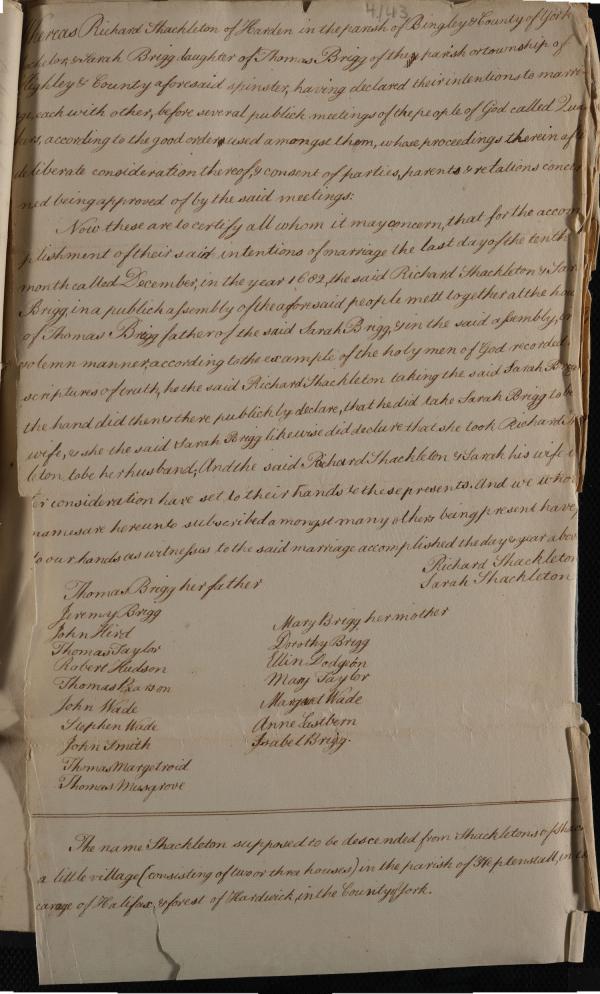 4/43
Whereas Richard Shackleton of Harden in the parish of Bingley & County of York
& Sarah Brigg daughter of Thomas Brigg of the parish or township of
Kighley & County aforesaid spinster, having declared their intentions to marri-
each with other, before several publick meetings of the people of God called Qua-
kers, according to the good order used amongst them, whose proceedings therein
deliberate consideration thereof, & consent of parties, parents & relations concer-
ned being approved of by the said meetings:
Now these are to certify all whom it may concern, that for the accom
plishment of their said intentions of marriage the last day of the tenth
month called December, in the year 1682, the said Richard Shackleton & Sarah
Brigg, in a publick assembly of the aforesaid people mett together at the hou
of Thomas Brigg father of the said Sarah Brigg, & in the said assembly,
solemn manner, according to the example of the holy men of God recorded
scriptures of truth, he the said Richard Shackleton taking the said Sarah Brigg
the hand did then & there publickly declare, that he did take Sarah Brigg to be
wife, & she the said Sarah Brigg likewise did declare that she took Richard
leton to be her husband; And the said Richard Shackleton & Sarah his wife
ter consideration have set to their hands to these presents. And we who
names are hereunto subscribed amongst many others being present have
to our hands as witnesses to the said marriage accomplished the day & year abov
Richard Shackleton
Sarah Shackleton
Thomas Brigg her father
Jeremy Brigg
John Hird
Thomas Taylor
Robert Hudson
Thomas Pearson
John Wade
Stephen Wade
John Smith
Thomas Margetroid
Thomas Musgrove
Mary Brigg her mother
Dorothy Brigg
Ellin Dodgson
Mary Taylor
Margaret Wade
Anne Eastbern
Isabel Brigg.
The name Shackleton supposed to be descended from Shackletons of
a little village (consisting of two or three houses) in the parish of Heptenstall, in
carage of Halifax, & forest of Hardwick, in the County of York.